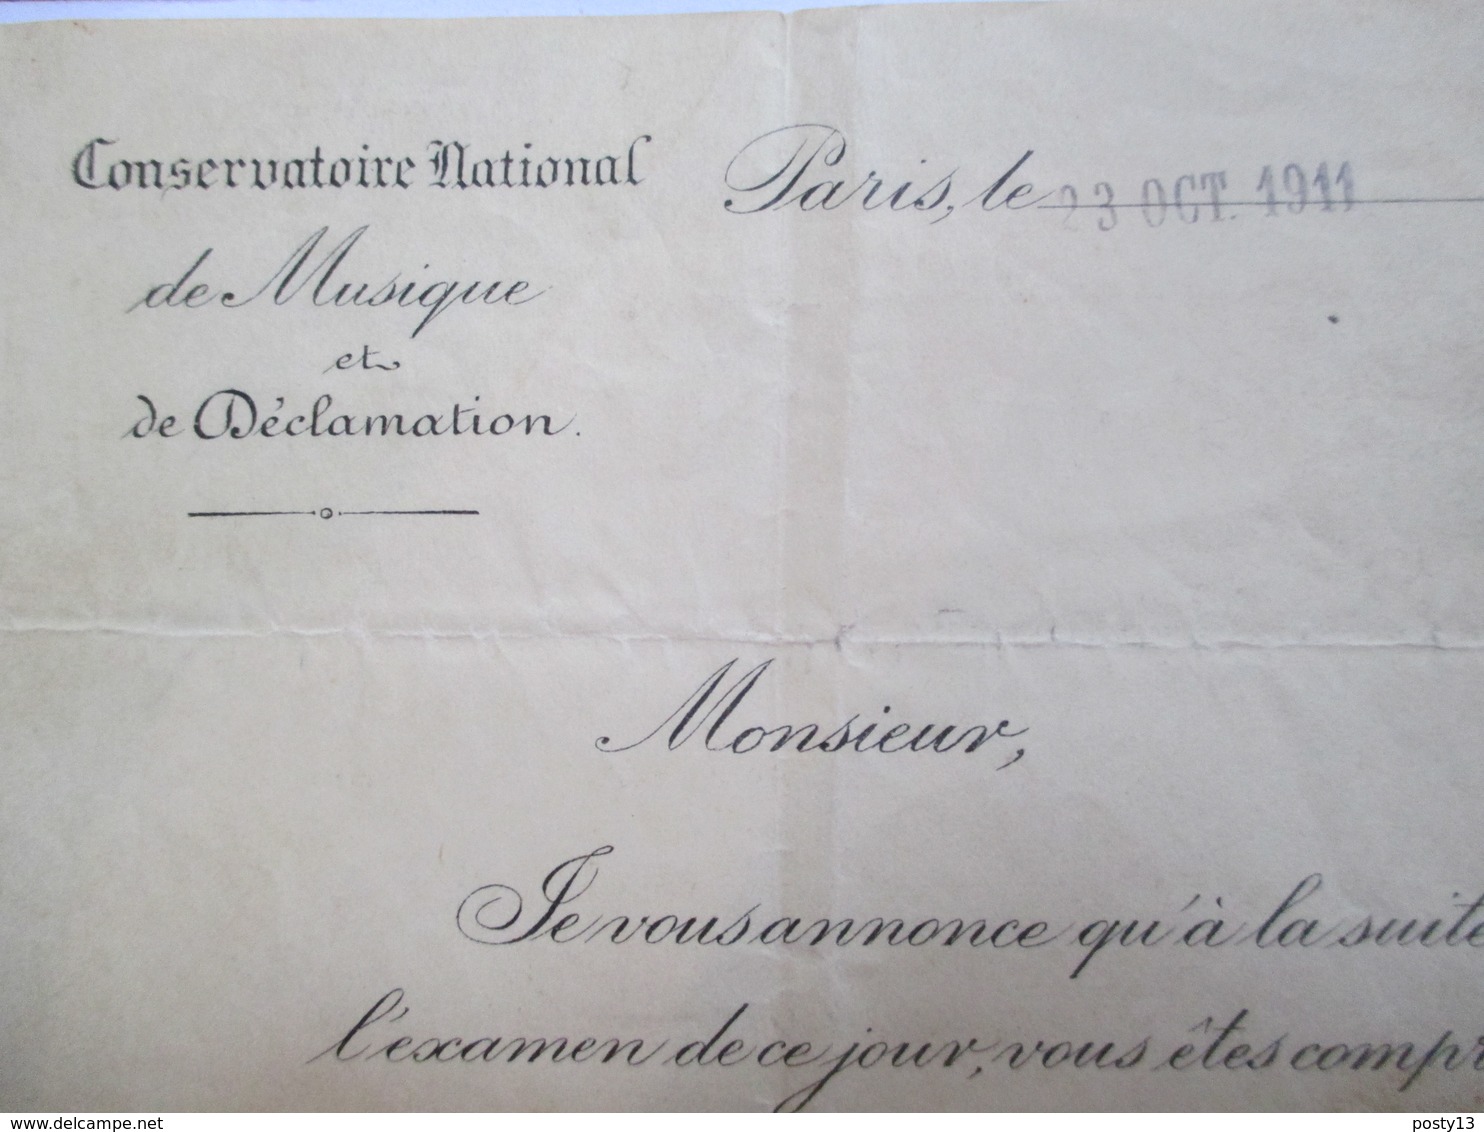 Conservatoire National
de Musique
et
de Déclamation.
Paris, le 23 OCT. 1911
Monsieur,
Je vous annonce qu'à la suite
l'examen de ce jour, vous êtes
delcampe.net
posty13